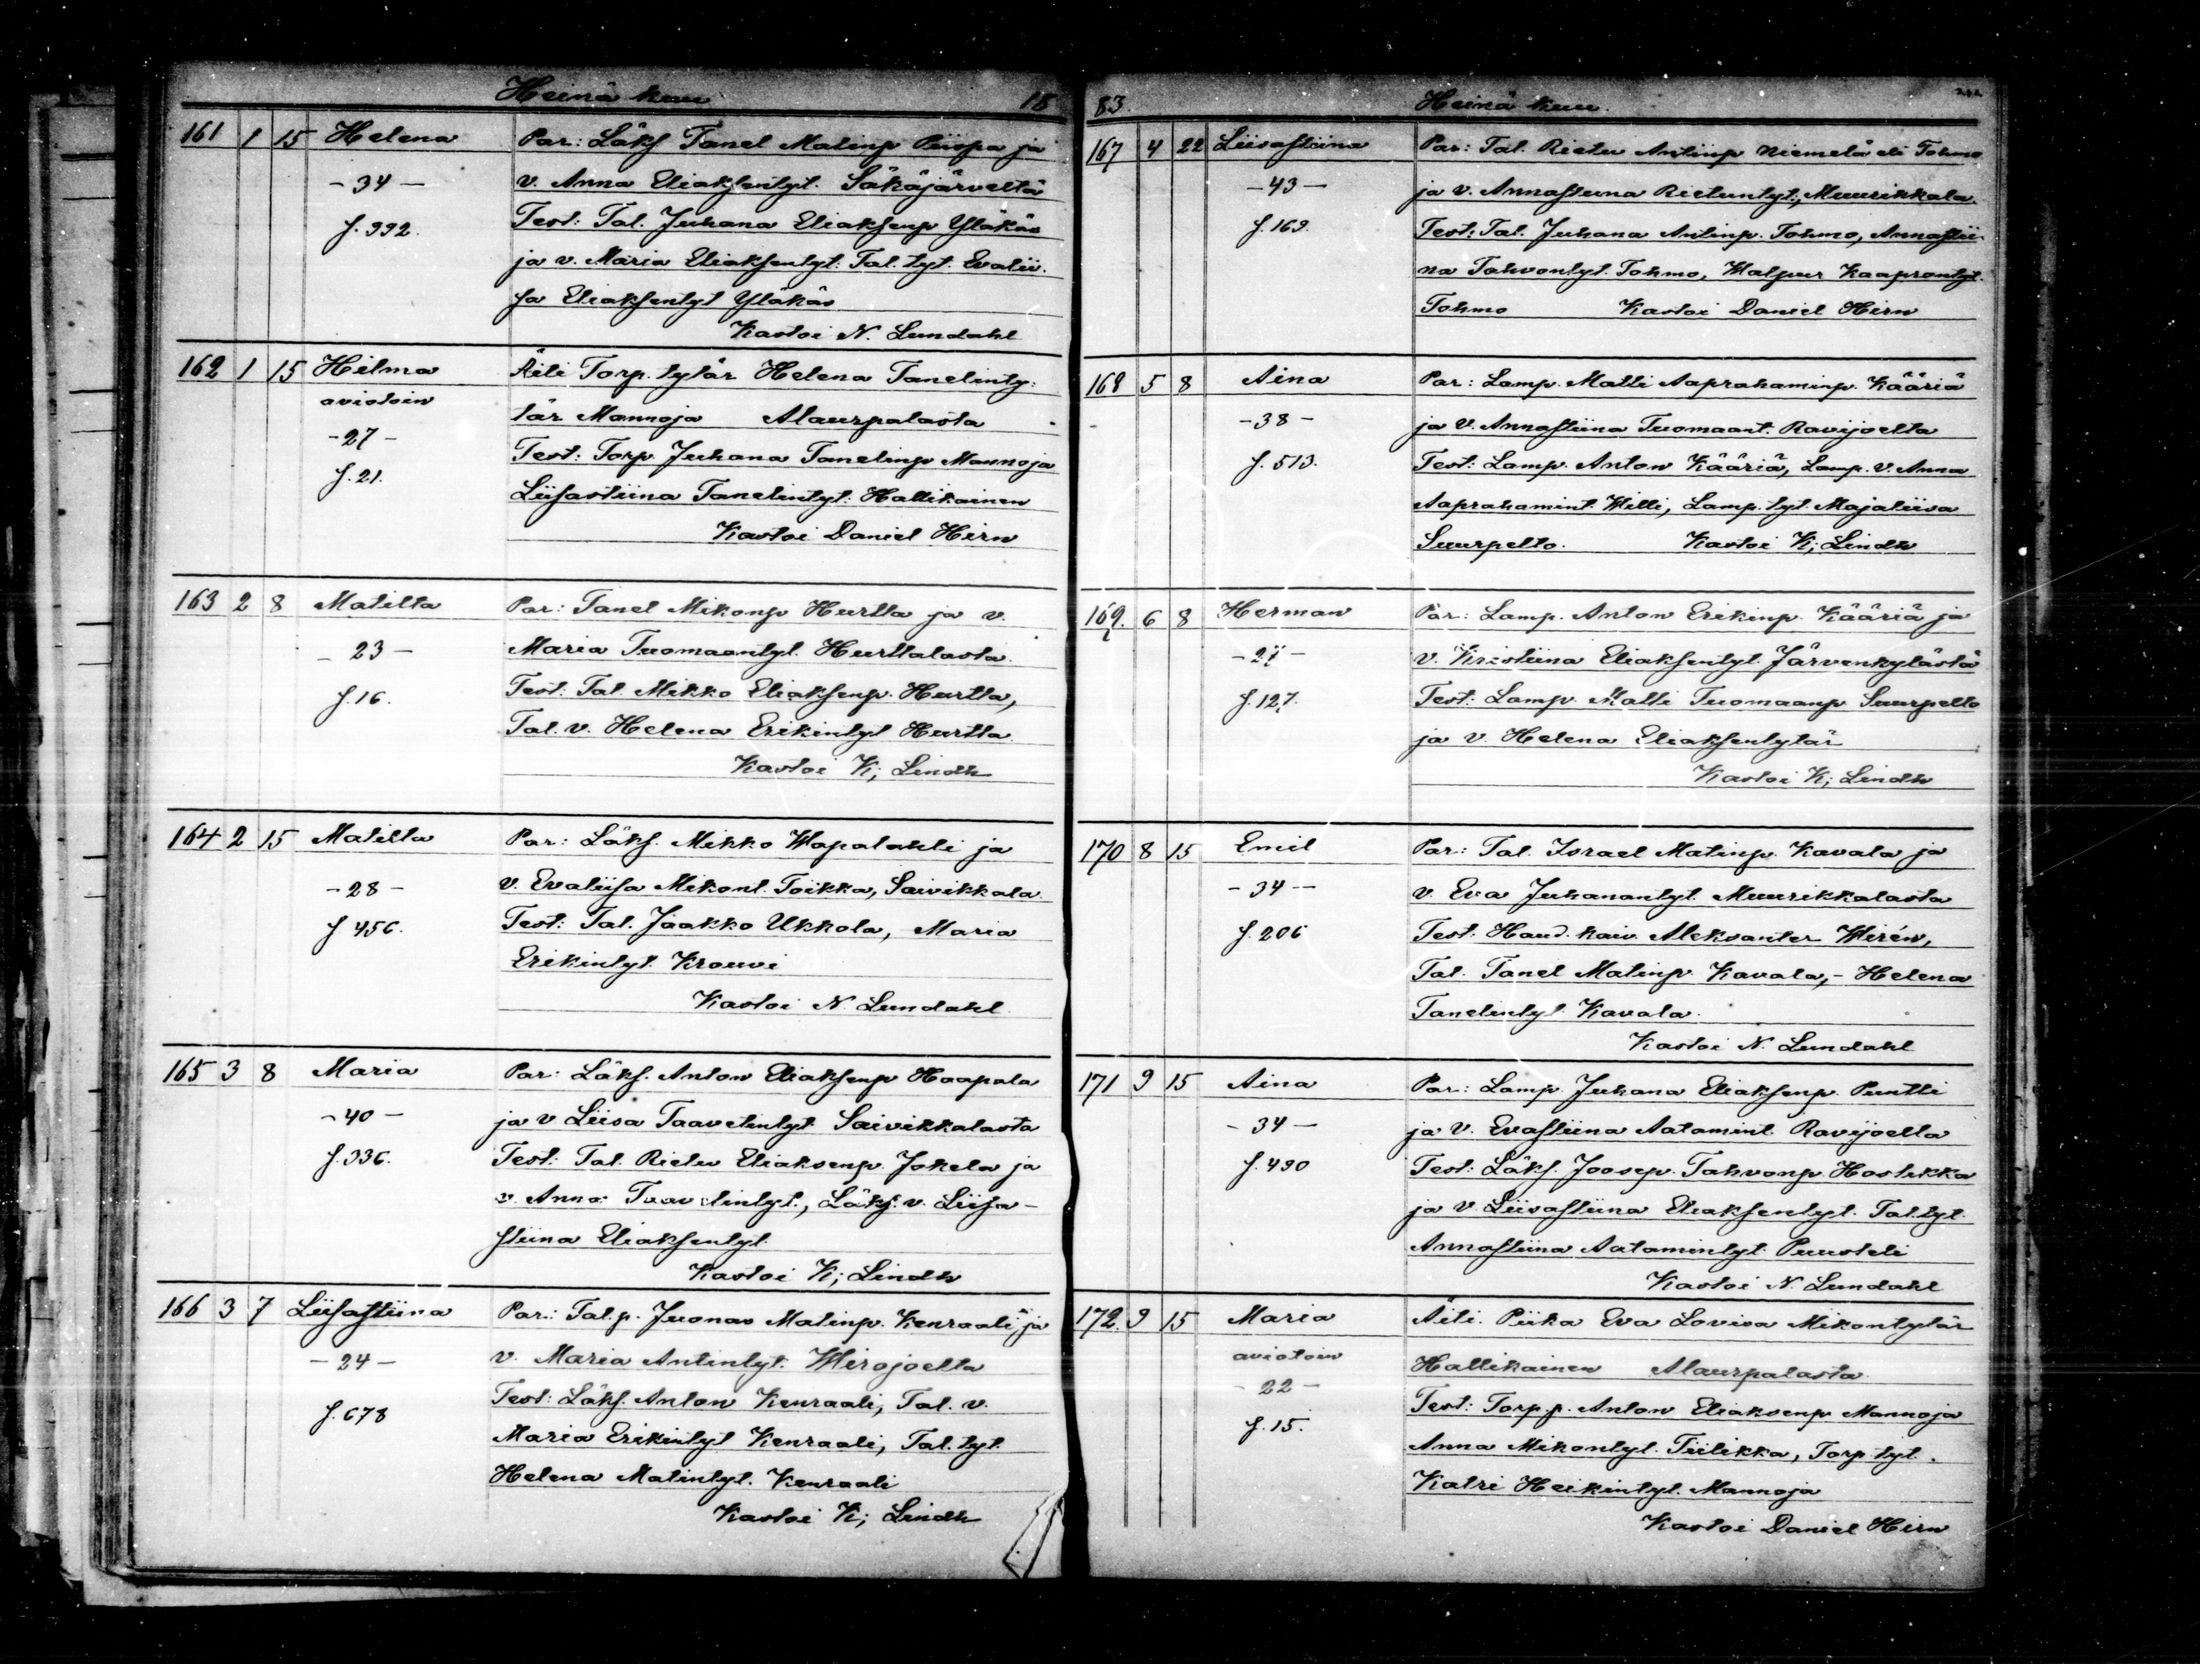 Heinä kuu 18
161 1 15 Helena Par: Läks Tanel Matinp Piispa ja
- 34 - v. Anna Eliaksentyt. Säkäjärveltä
f. 392. Test: Tal. Juhana Eliaksenp Yläkäs
ja v. Maria Eliaksentyt. Tal. tyt. Evalii-
sa Eliaksentyt Yläkäs
Kastoi N. Lundahl
162 1 15 Hilma Äiti Torp. tytär Helena Tanelinty:
aviotoin tär Mannoja Alaurpalasta
- 27 - Test: Torp. Juhana Tanelinp Mannoja
f. 21. Liisastiina Tanelintyt: Hallikainen
Kastoi Daniel Hirn
163 2 8 Matilta Par: Tanel Mikonp Hurtta ja v.
- 23 - Maria Tuomaantyt. Hurttalasta.
f. 16. Test: Tal. Mikko Eliaksenp. Hurtta,
Tal. v. Helena Erikintyt Hurtta.
Kastoi K; Lindh
164 2 15 Matilta Par: Läks. Mikko Wapalahti ja
- 28 - v. Evaliisa Mikont. Toikka, Saivikkala.
f 456. Test: Tal. Jaakko Ukkola, Maria
Erikintyt. Krouvi
Kastoi N. Lundahl
165 3 8 Maria Par: Läks. Anton Eliaksenp Haapala
- 40 - ja v Liisa Taavetintyt Saivikkalasta
f. 336. Test: Tal. Rietu Eliaksenp. Jokela ja
v. Anna Taavetintyt., Läks. v. Liisa-
stiina Eliaksentyt.
Kastoi K; Lindh
166 3 7 Liisastiina Par: Tal.p. Juonas Matinp. Kenraali ja
- 24 - v. Maria Antintyt: Wirojoelta
f. 678 Test: Läks. Anton Kenraali, Tal. v.
Maria Erikintyt Kenraali, Tal. tyt.
Helena Matintyt. Kenraali
Kastoi K; Lindh
83 Heinä kuu.
167 4 22 Liisastiina Par: Tal. Rietu Antinp Niemelä eli Tohmo
- 43 - ja v. Annastiina Rietuntyt:, Muurikkala.
f. 169. Test: Tal. Juhana Antinp. Tohmo, Annastii-
na Tahvontyt. Tohmo, Walpur Kaaprontyt.
Tohmo Kastoi Daniel Hirn
168 5 8 Aina Par: Lamp. Matti Aaprahaminp. Kääriä
- 38 - ja v. Annastiina Tuomaant. Ravijoelta
f. 513. Test: Lamp. Anton Kääriä, Lamp. v. Anna
Aaprahamint. Willi, Lamp. tyt. Majaliisa
Suurpelto. Kastoi K; Lindh
169. 6 8 Herman Par: Lamp. Anton Erikinp. Kääriä ja
- 27 - v. Kristiina Eliaksentyt. Järvenkylästä
f. 127. Test: Lamp. Matti Tuomaanp Suurpelto
ja v. Helena Eliaksentytär
Kastoi K; Lindh
170 8 15 Emil Par: Tal. Israel Matinp. Kavala ja
- 34 - v. Eva Juhanantyt. Muurikkalasta
f. 206 Test. Haud. kaiv. Aleksanter Wirén,
Tal. Tanel Matinp Kavala, - Helena
Tanelintyt Kavala.
Kastoi N. Lundahl
171 9 15 Aina Par: Lamp. Juhana Eliaksenp. Puntti
- 34 - ja v. Evastiina Aatamint. Ravijoelta
f. 490 Test: Läks. Joosep. Tahvonp. Hostikka
ja v. Liisastiina Eliaksentyt. Tal. tyt.
Annastiina Aatamintyt Puusteli
Kastoi N. Lundahl
172. 9 15 Maria Äiti. Piika Eva Lovisa Mikontytär
aviotoin Hallikainen Alaurpalasta.
- 22 - Test: Torp.p. Anton Eliaksenp Mannoja
f. 15. Anna Mikontyt. Tiilikka, Torp tyt.
Katri Heikintyt. Mannoja
Kastoi Daniel Hirn